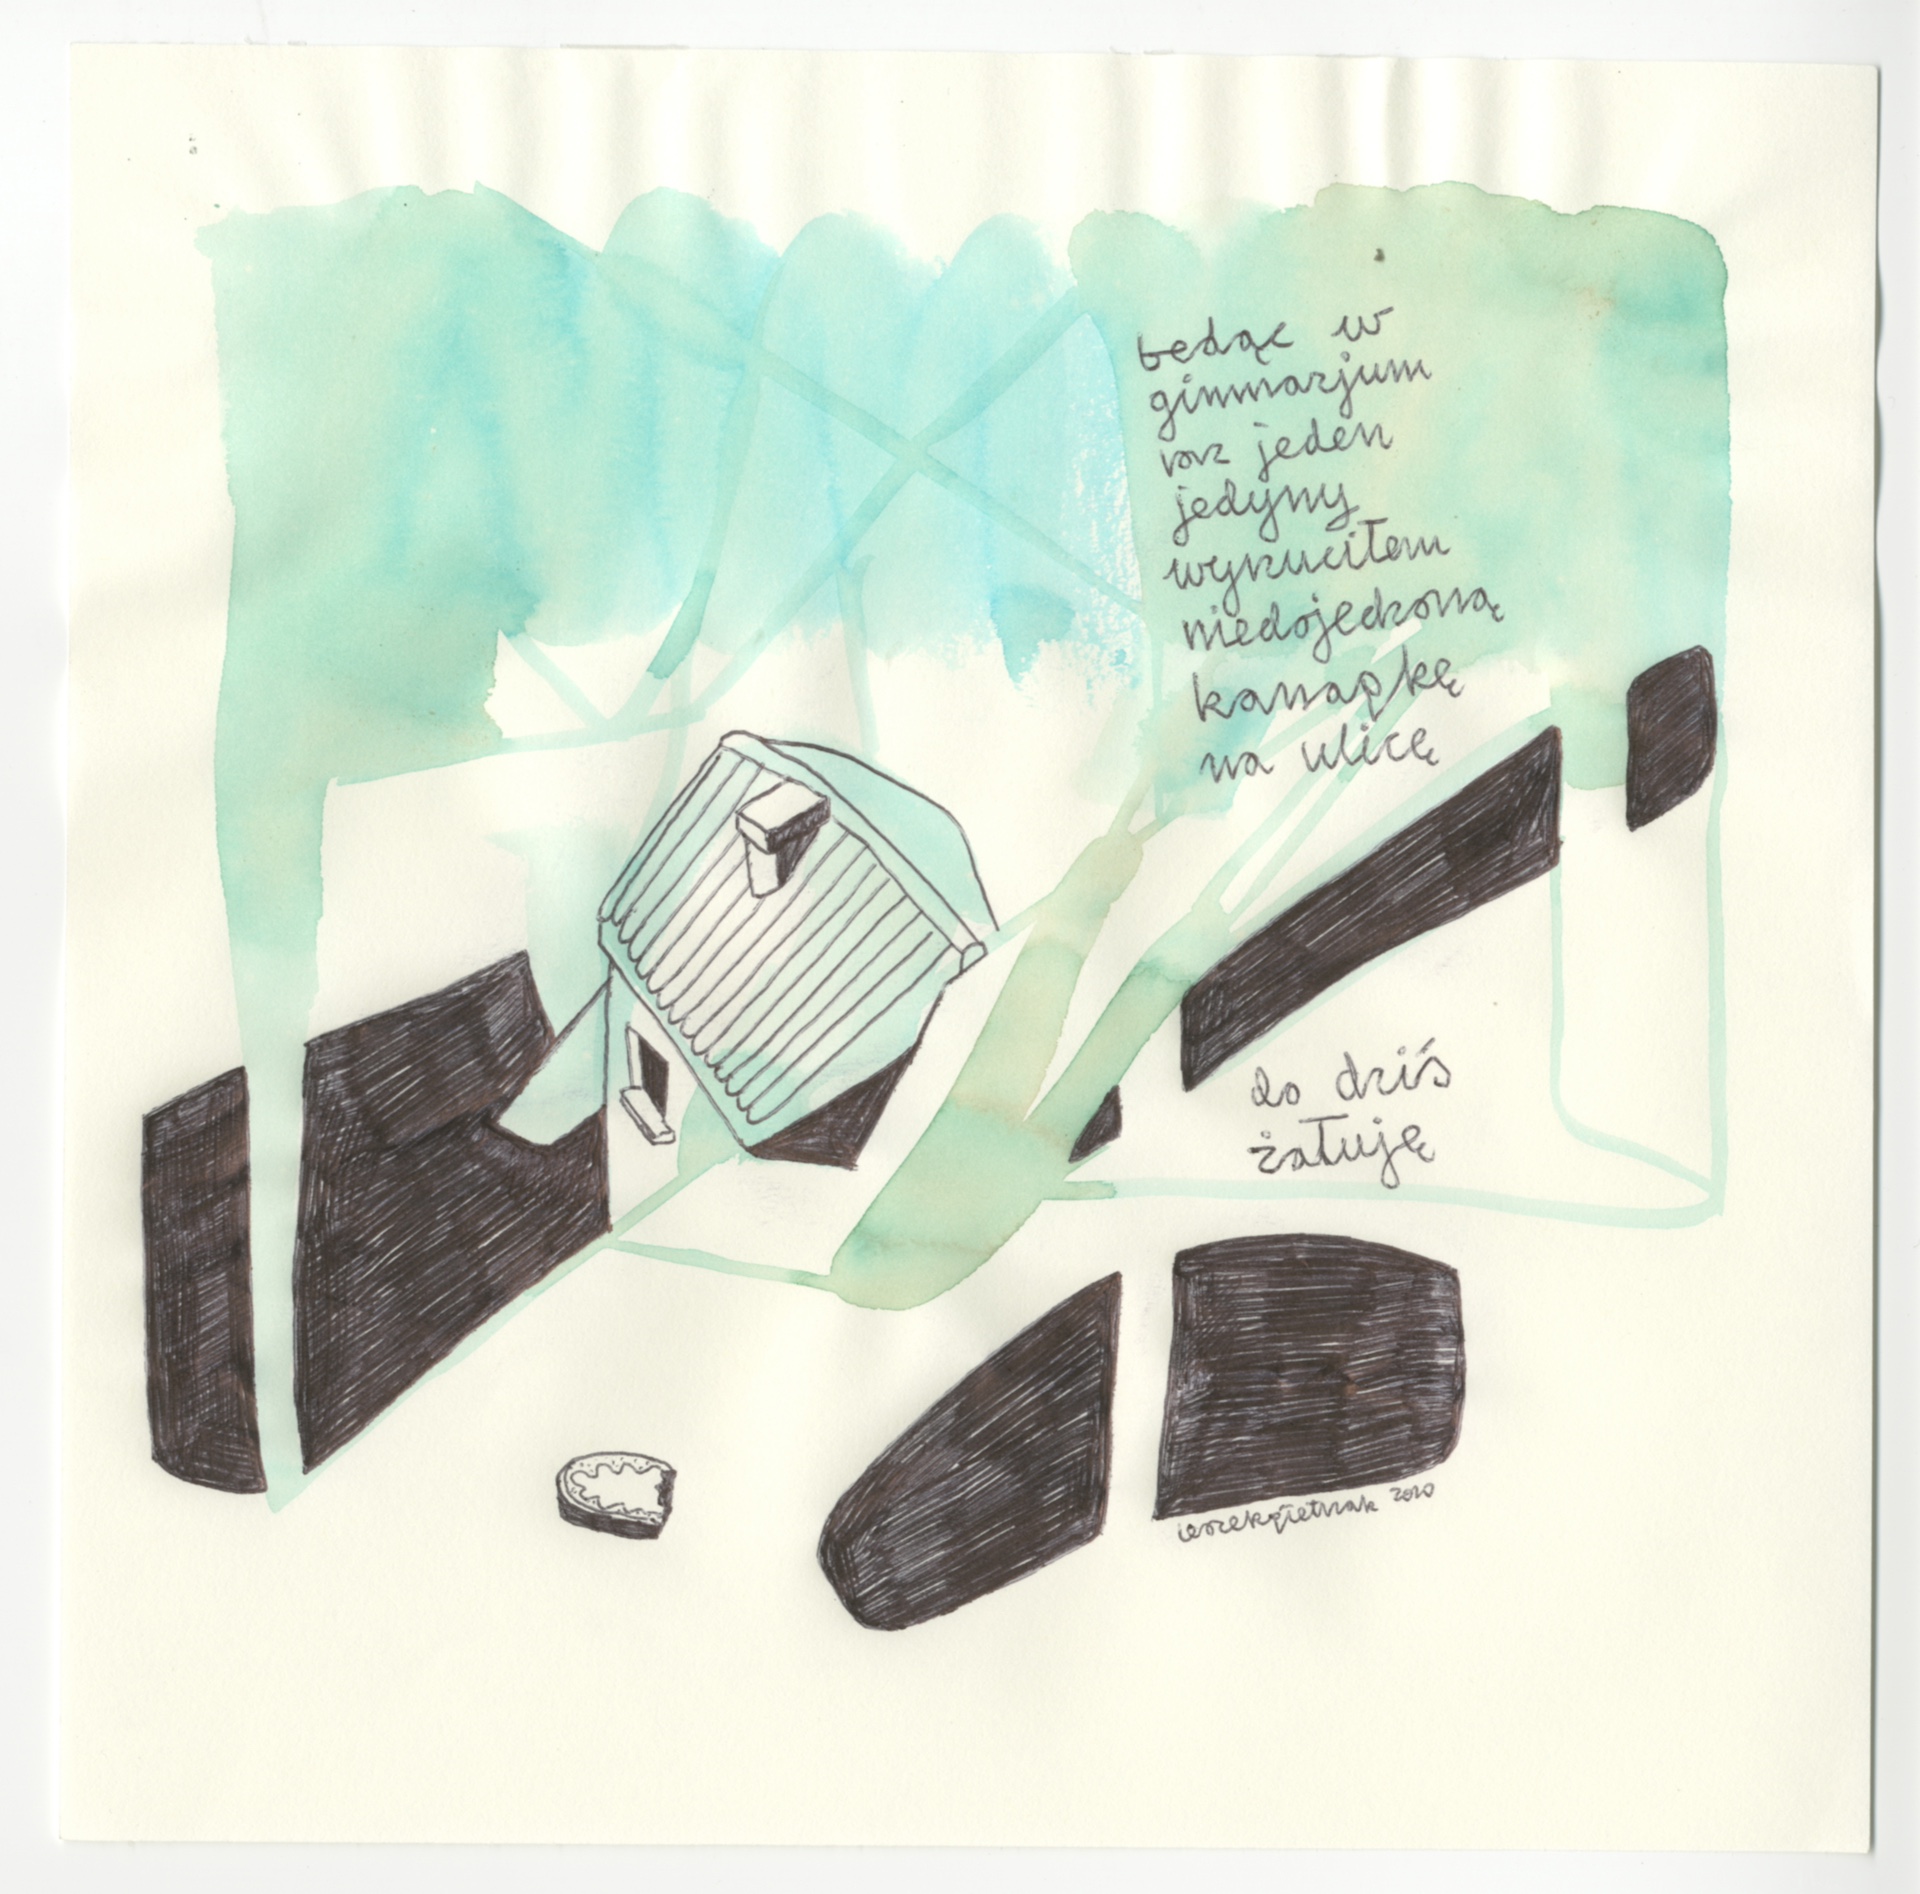 będąc w
gimnazjum
raz jeden
jedyny
wyrzuciłem
niedojedzoną
kanapkę
na ulicę
do dziś
żałuję
2020